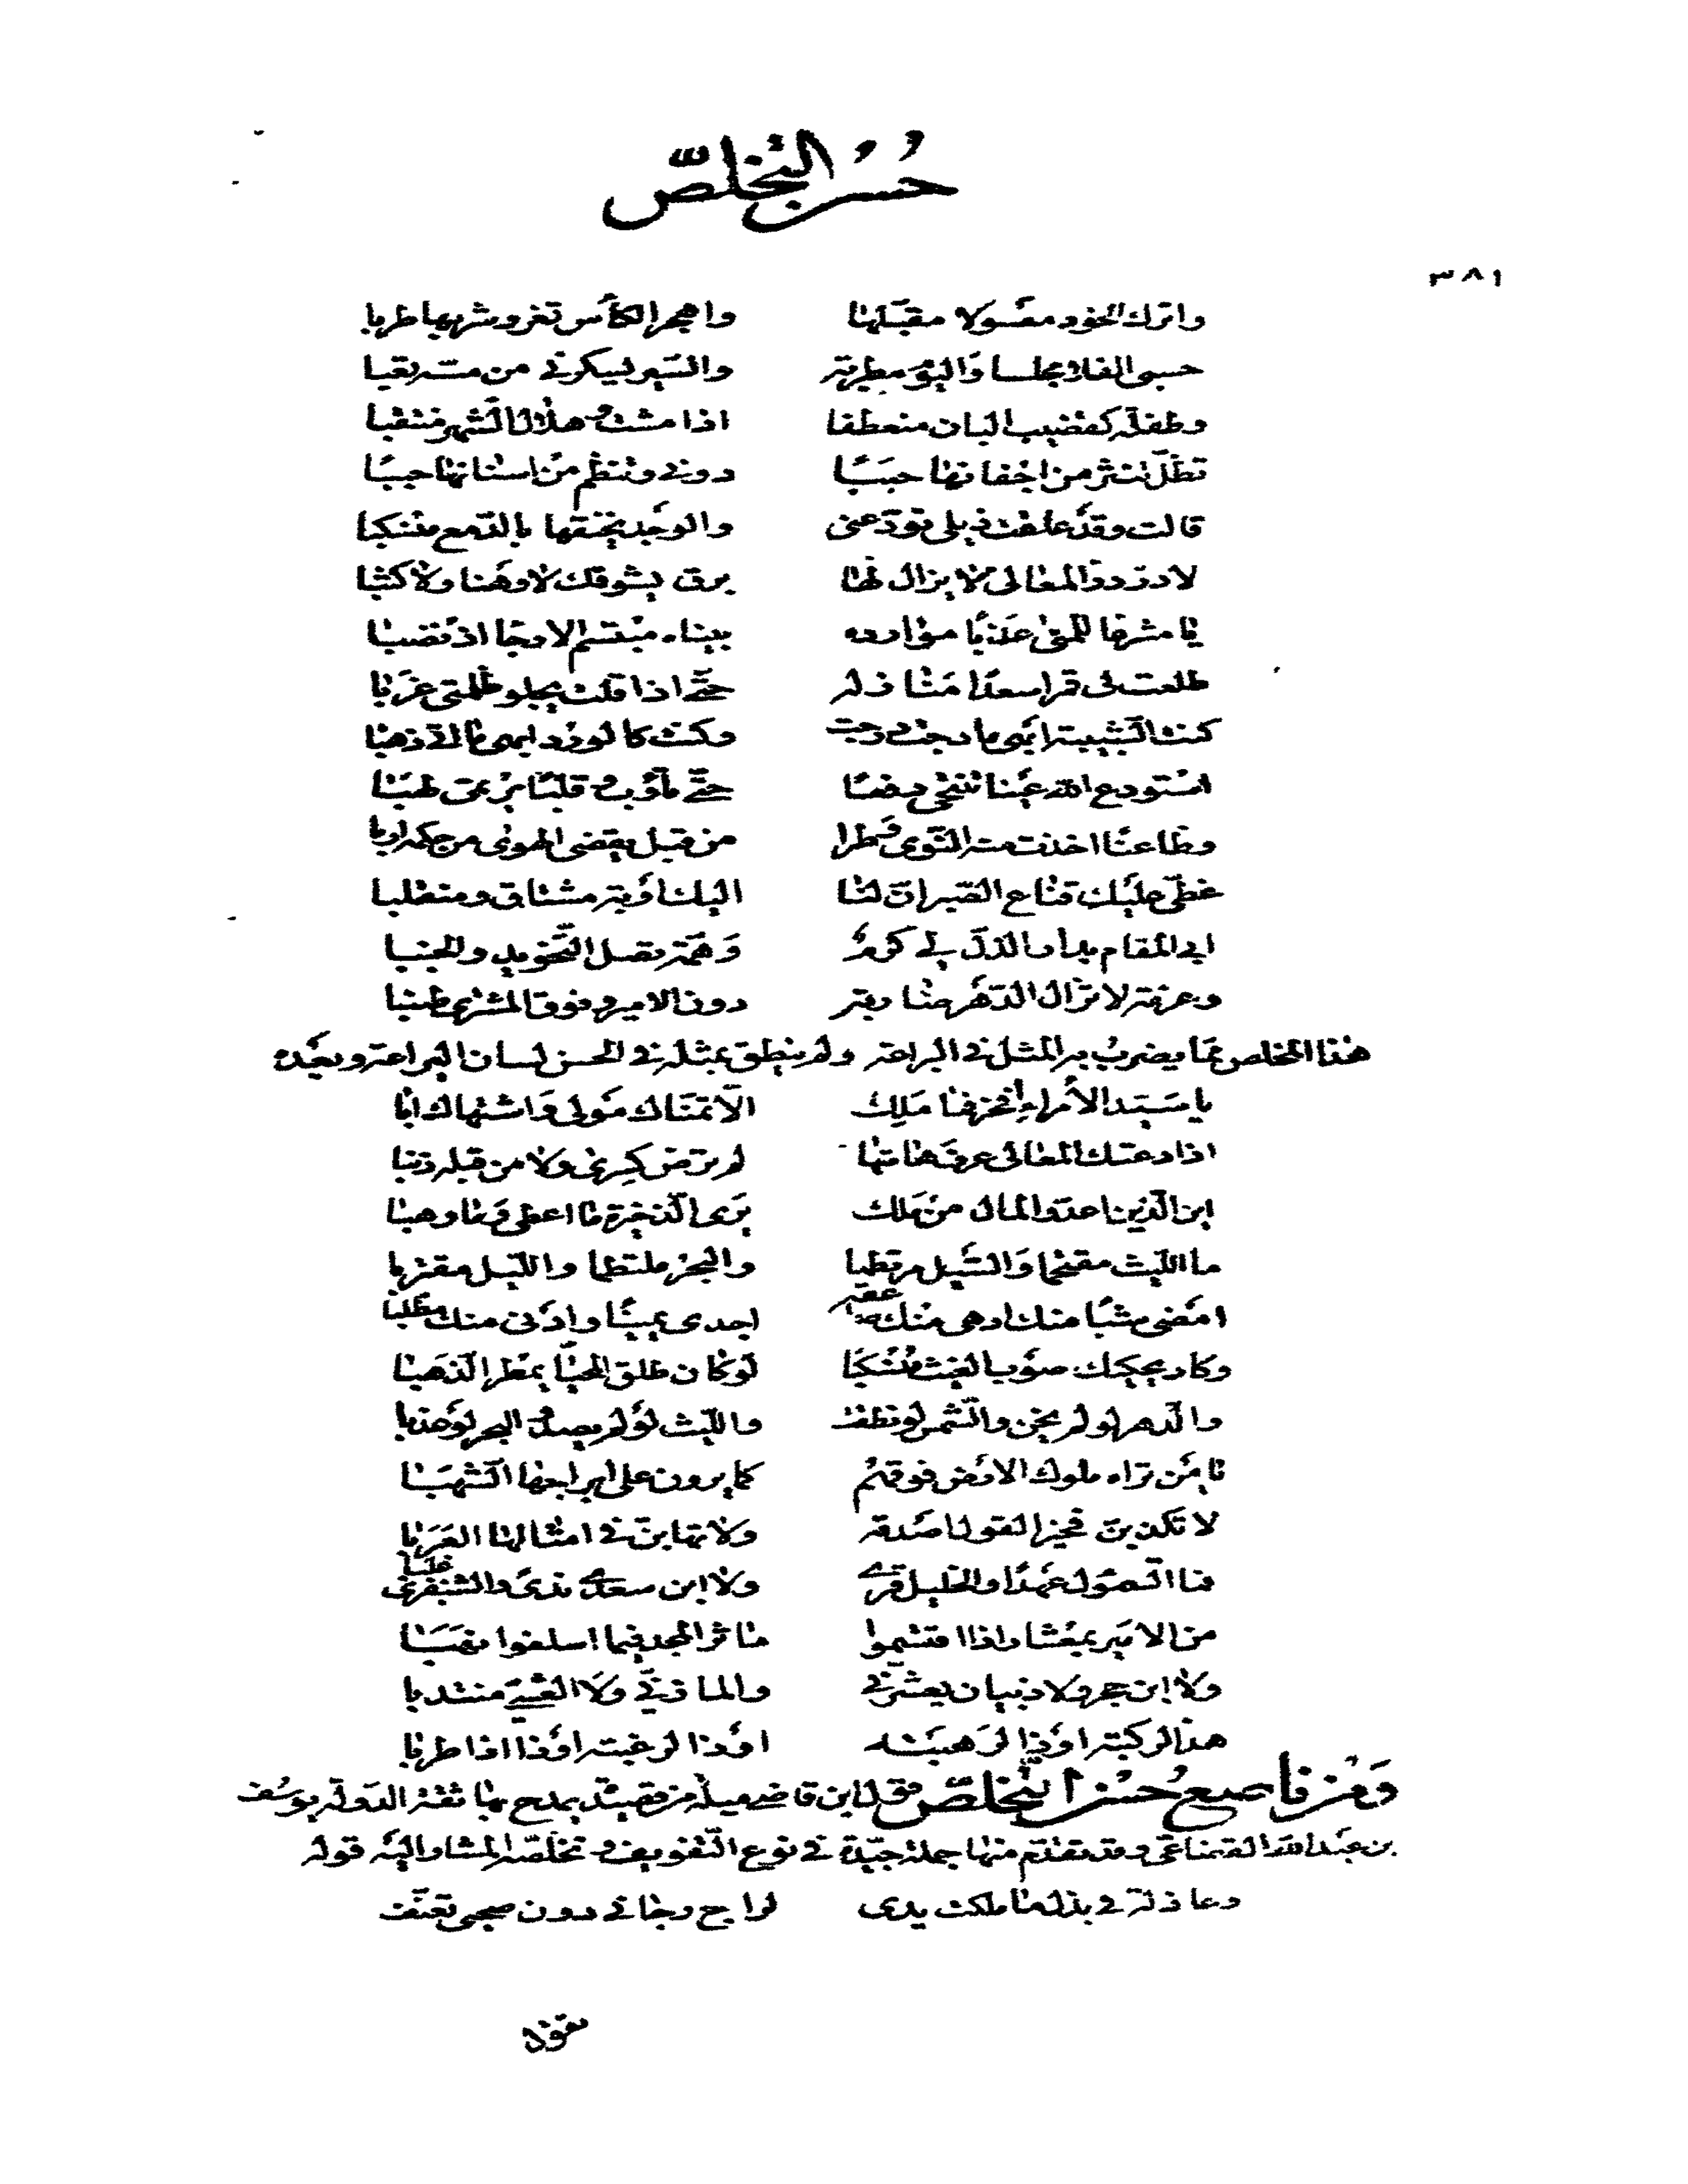 حُسْنُ التَّخَلُّصِ
٣٨١
واترك الخود معسولا مقبّلها واهجر الكأس تغرو شربها طربا
حسبى الفلا مجلسا والبوم مطربة والسّير يسكرنى من مسّه تعبا
وطفلة كقضيب البان منعطفا اذا مشت وهلال الشّهر منتقبا
تظلّ تنثر من اجفانها حببًا دونى وتنظم من اسنانها حببًا
قالت وقد علقت ذيلى تودّعنى والوجد يخنقها بالدّمع منسكبا
لا درّ درّ المعالى لا يزال لها برق يشوقك لا وهنا ولا كثبا
يا مشرعا للمنى عذبًا موارده بيناه مبتسم الارجاء اذ نضبا
طلعت لى قمرا سعدا منازله حتّى اذا قلت يجلو ظلمتى غربا
كنت الشّبيبة ابهى ما دجت درجت وكنت كالورد ابهى ما اتى ذهبا
استودع الله عينا تنتحى دفعًا حتّى تؤوب وقلبًا يرتمى لهبا
وظاعنًا اخذت منه النّوى وطرا من قبل يقضى الهوى من حكمه اربا
غطّى عليك قناع الصّبر انّ لنا اليك اوبة مشتاق ومنقلبا
ابى المقام بدار الذّلّ لى كرم وهمّة تصل التّخويد والخببا
وعزمة لا تزال الدّهر ضاربة دون الامير وفوق المشترى طنبا
هذا المخلص ممّا يضرب به المثل فى البراعة ولم ينطق بمثله فى الحسن لسان اليراعة وبعده
يا سيّد الأمراء افخر فما ملك الّا تمنّاك مولى واشتهاك ابا
اذا دعتك المعالى عرف هامتها لم ترض كسرى ولا من قبله ذنبا
اين الّذين اعدّوا المال من ملك يرى الذّخيرة ما اعطى وما وهبا
ما اللّيث مقتحما والسّيل مرتطما والبحر ملتطما واللّيل مقتربا
امضى شبًا منك ادهى منك صاعقة اجدى يمينًا وادنى منك مطّلبا
وكاد يحكيك صوب الغيث منسكبا لو كان طلق المحيّا يمطر الذّهبا
والدّهر لو لم يخن والشّمس لو نطقت واللّيث لو لم يصد والبحر لو عذبا
يا من تراه ملوك الارض فوقهم كما يرون على ابراجها الشّهبا
لا تكذبنّ فخير القول اصدقه ولا تهابنّ فى امثالها العربا
فما السّموّل عهدًا والخليل قرى ولا ابن سعدى ندى والشّنفرى غلبا
من الامير بمعشار اذا اقتسموا مآثر المجد فيما اسلفوا نهبا
ولا ابن حجر ولا ذبيان يعشرنى والمازنىّ ولا القيسىّ منتدبا
هذا لركبته او ذا لرهبته او ذا لرغبته او ذا اذا طربا
وَمِنْ بَاصِعِ حُسْنِ التَّخَلُّصِ قول ابن قاضى ميلة من قصيدة يمدح بها ثقة الدّولة يوسف
بن عبد الله القضاعى وقد تقدّم منها جملة جيّدة فى نوع التّفويف وتخلّصه المشار اليه قوله
وعاذلة فى بذل ما ملكت يدى لراج رجانى دون صحبى تعنّف
تقول